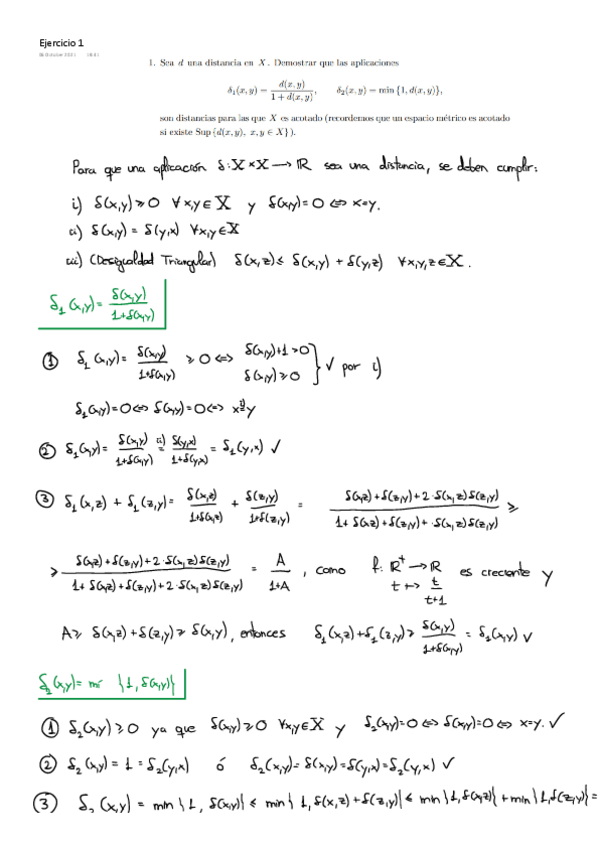 Ejercicio 1
1. Sea d una distancia en X. Demostrar que las aplicaciones
δ₁(x, y) = d(x, y) / (1 + d(x, y)), δ₂(x, y) = min {1, d(x, y)},
son distancias para las que X es acotado (recordemos que un espacio métrico es acotado
si existe Sup {d(x, y), x, y ∈ X}).
Para que una aplicación δ: X × X → ℝ sea una distancia, se deben cumplir:
i) δ(x,y) ≥ 0 ∀x,y ∈ X y δ(x,y) = 0 ⇔ x=y.
ii) δ(x,y) = δ(y,x) ∀x,y ∈ X
iii) (Desigualdad Triangular) δ(x,z) ≤ δ(x,y) + δ(y,z) ∀x,y,z ∈ X.
δ₁(x,y) = δ(x,y) / (1+δ(x,y))
① δ₁(x,y) = δ(x,y) / (1+δ(x,y)) ≥ 0 ⇔ δ(x,y)+1 > 0 δ(x,y) ≥ 0 } √ por i)
δ₁(x,y) = 0 ⇔ δ(x,y) = 0 ⇔ x = y
② δ₁(x,y) = δ(x,y) / (1+δ(x,y)) =ii) δ(y,x) / (1+δ(y,x)) = δ₁(y,x) √
③ δ₁(x,z) + δ₁(z,y) = δ(x,z) / (1+δ(x,z)) + δ(z,y) / (1+δ(z,y)) = (δ(x,z) + δ(z,y) + 2·δ(x,z)δ(z,y)) / (1 + δ(x,z) + δ(z,y) + ·δ(x,z)δ(z,y)) ≥
≥ (δ(x,z) + δ(z,y) + 2·δ(x,z)δ(z,y)) / (1 + δ(x,z) + δ(z,y) + 2·δ(x,z)δ(z,y)) = A / (1+A), como f: ℝ⁺ → ℝ t ↦ t / (t+1) es creciente y
A ≥ δ(x,z) + δ(z,y) ≥ δ(x,y), entonces δ₁(x,z) + δ₁(z,y) ≥ δ(x,y) / (1+δ(x,y)) = δ₁(x,y) √
δ₂(x,y) = mí {1, δ(x,y)}
① δ₂(x,y) ≥ 0 ya que δ(x,y) ≥ 0 ∀x,y ∈ X y δ₂(x,y) = 0 ⇔ δ(x,y) = 0 ⇔ x=y. √
② δ₂(x,y) = 1 = δ₂(y,x) ó δ₂(x,y) = δ(x,y) = δ(y,x) = δ₂(y,x) √
③ δ₂(x,y) = min {1, δ(x,y)} ≤ min {1, δ(x,z) + δ(z,y)} ≤ min {1, δ(x,z)} + min {1, δ(z,y)} =